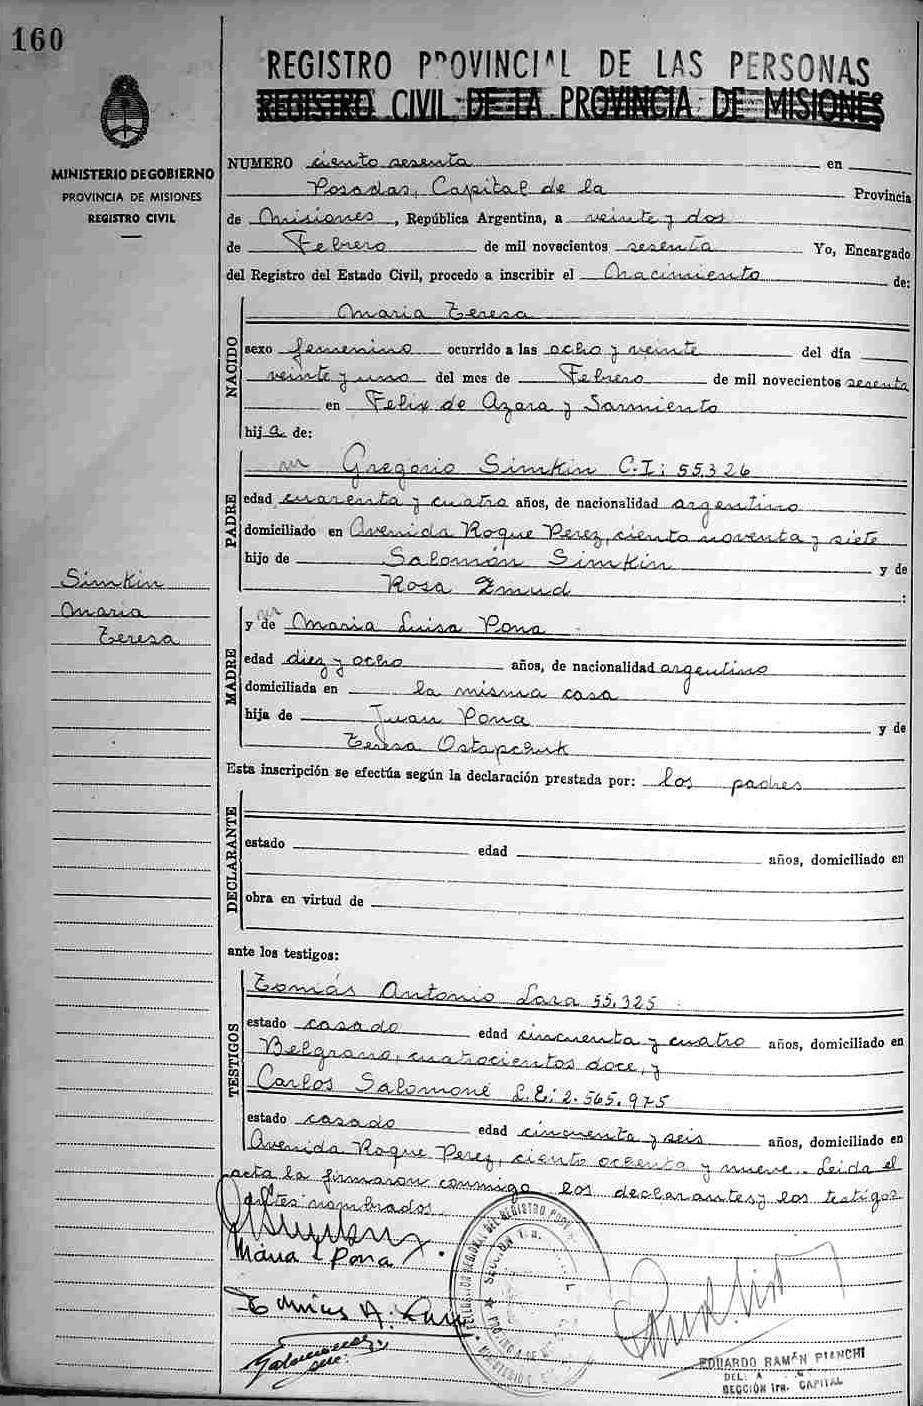 160
REGISTRO PROVINCIAL DE LAS PERSONAS
REGISTRO CIVIL DE LA PROVINCIA DE MISIONES
MINISTERIO DE GOBIERNO
PROVINCIA DE MISIONES
REGISTRO CIVIL
NUMERO ciento sesenta en
Posadas, Capital de la Provincia
de Misiones, República Argentina, a veinte y dos
de Febrero de mil novecientos sesenta Yo, Encargado
del Registro del Estado Civil, procedo a inscribir el Nacimiento de:
NACIDO
Maria Teresa
sexo femenino ocurrido a las ocho y veinte del día
veinte y uno del mes de Febrero de mil novecientos sesenta
en Felix de Azara y Sarmiento
hija de:
PADRE
Gregorio Simkin C.I: 55.326
edad cuarenta y cuatro años, de nacionalidad argentino
domiciliado en Avenida Roque Perez, ciento noventa y siete
hijo de Salomón Simkin y de
Rosa Zmud :
Simkin
Maria
Teresa
MADRE
y de Maria Luisa Pona
edad diez y ocho años, de nacionalidad argentino
domiciliada en la misma casa
hija de Juan Pona y de
Teresa Ostapchuk
Esta inscripción se efectúa según la declaración prestada por: los padres
DECLARANTE
estado edad años, domiciliado en
obra en virtud de
ante los testigos:
TESTIGOS
Tomás Antonio Lara 55.325
estado casado edad cincuenta y cuatro años, domiciliado en
Belgrano, cuatrocientos doce, y
Carlos Salomone L.E: 2.565.975
estado casado edad cincuenta y seis años, domiciliado en
Avenida Roque Perez, ciento ochenta y nueve. Leida el
acta la firmaron conmigo los declarantes y los testigos
antes nombrados.
Maria L Pona
Tomás A. Lara
SECCION 1ra.
EDUARDO RAMÓN PIANCHI
SECCIÓN 1ra. CAPITAL